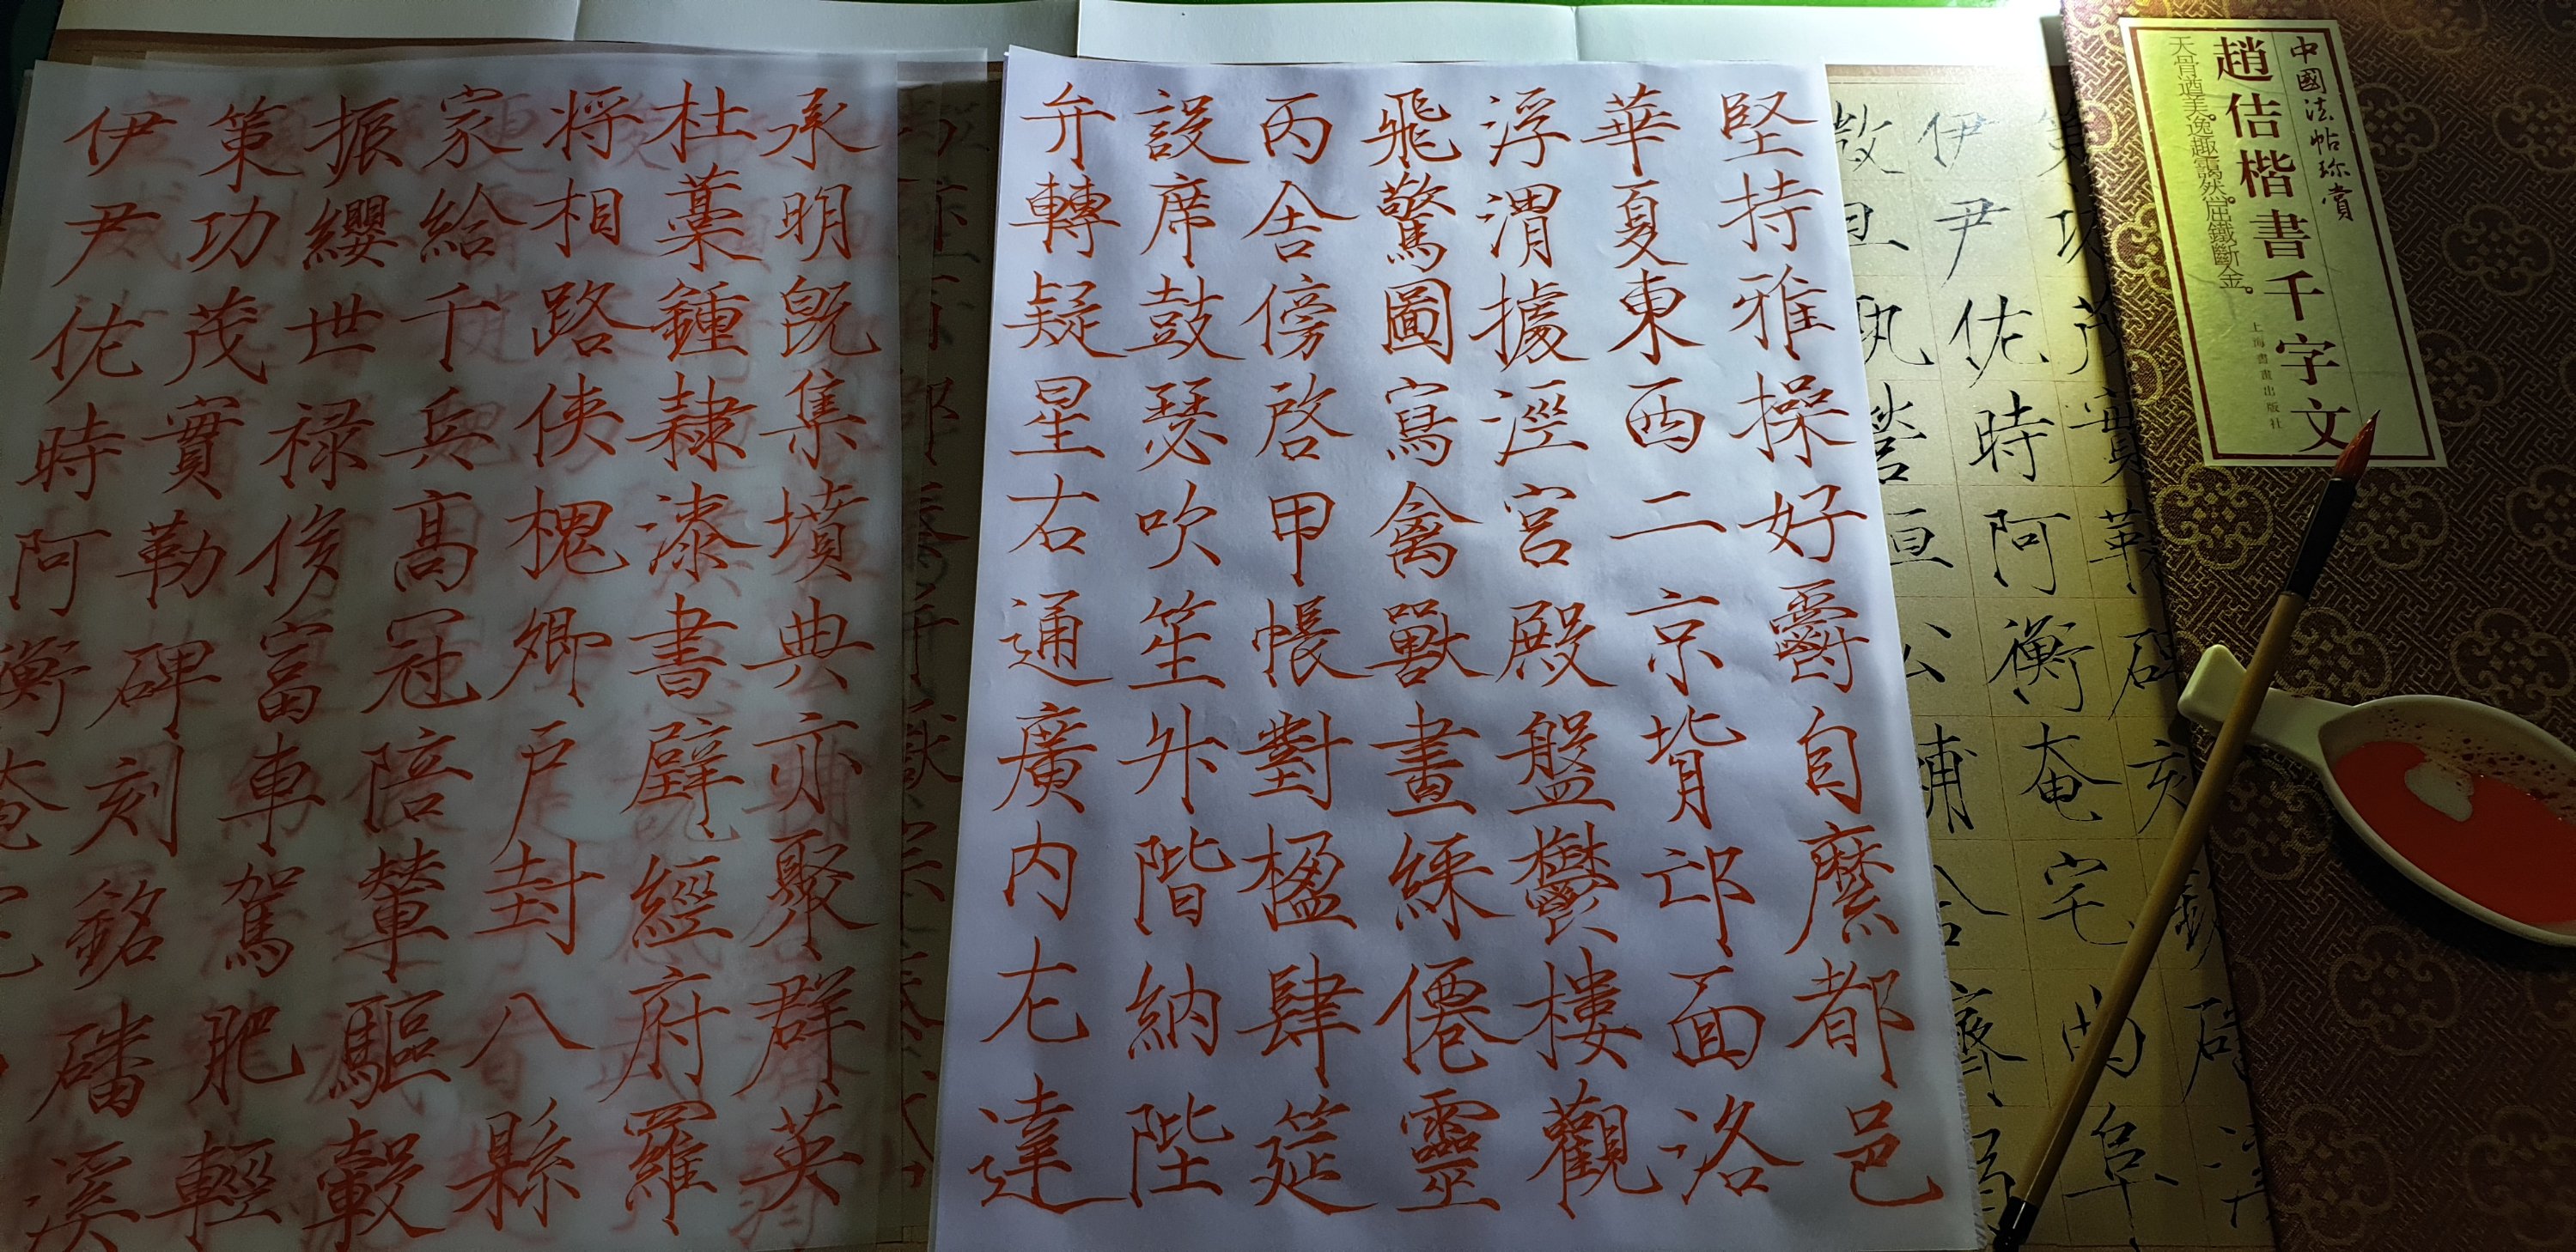 中國法帖珍賞
趙佶楷書千字文
天骨遒美。逸趣靄然。屈鐵斷金。
上海書畫出版社
伊尹佐時阿衡奄宅曲阜
堅持雅操好爵自縻都邑
華夏東西二京背邙面洛
浮渭據涇宮殿盤鬱樓觀
飛驚圖寫禽獸畫綵僊靈
丙舍傍啓甲帳對楹肆筵
設席鼓瑟吹笙升階納陛
弁轉疑星右通廣內左達
承明既集墳典亦聚群英
杜藁鍾隸漆書壁經府羅
將相路俠槐卿戶封八縣
家給千兵高冠陪輦驅轂
振纓世祿侈富車駕肥輕
策功茂實勒碑刻銘磻溪
伊尹佐時阿衡奄宅